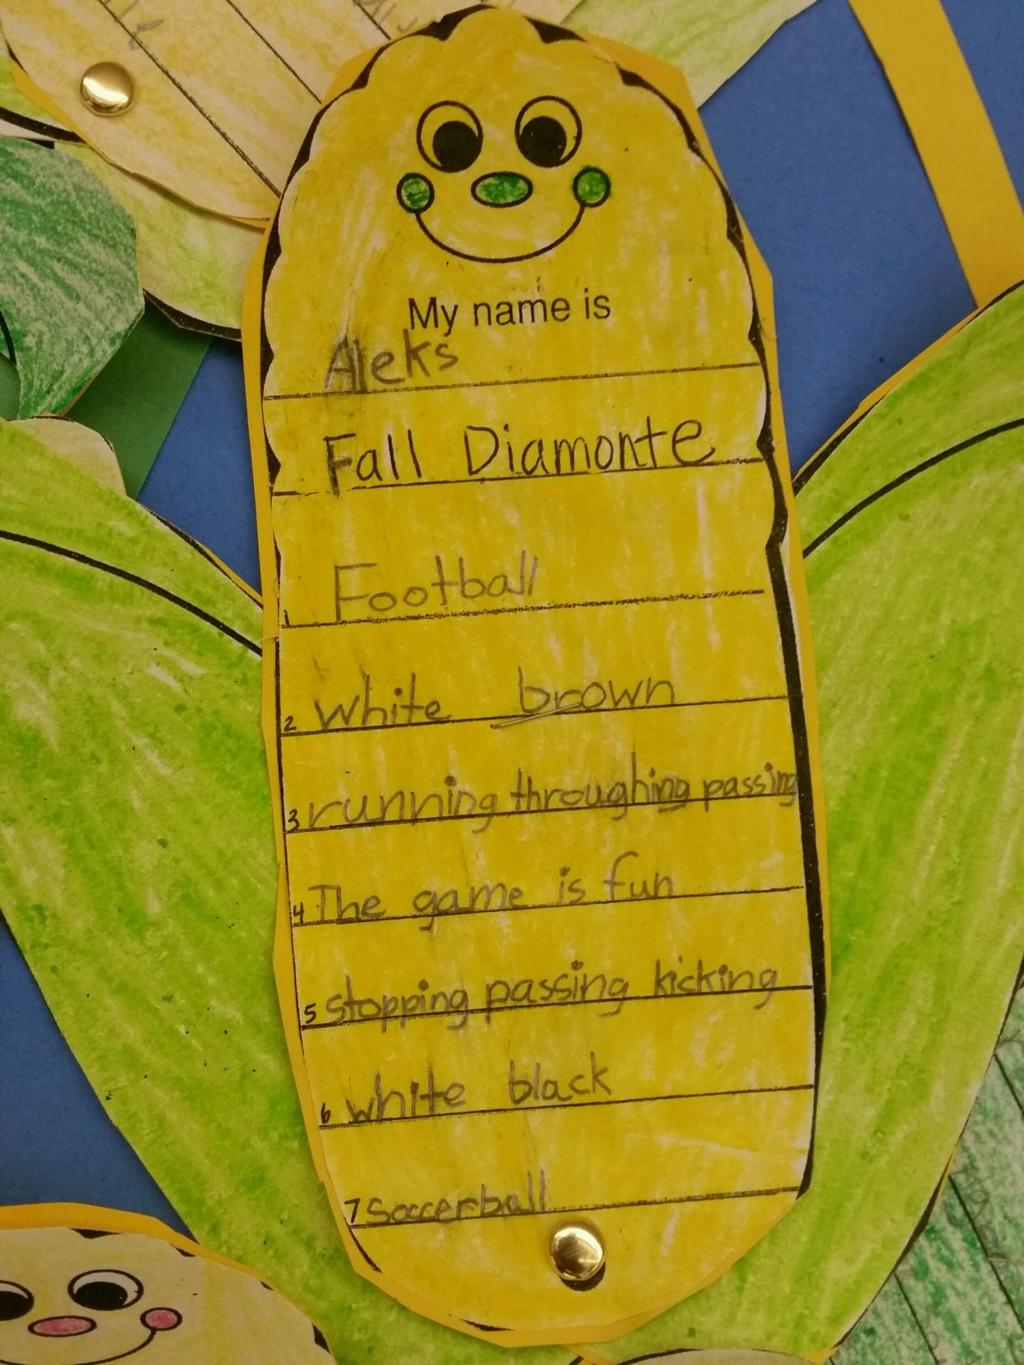 My name is
Aleks
Fall Diamonte
1 Football
2 white brown
3 running throughing passing
4 The game is fun
5 stopping passing kicking
6 white black
7 soccerball